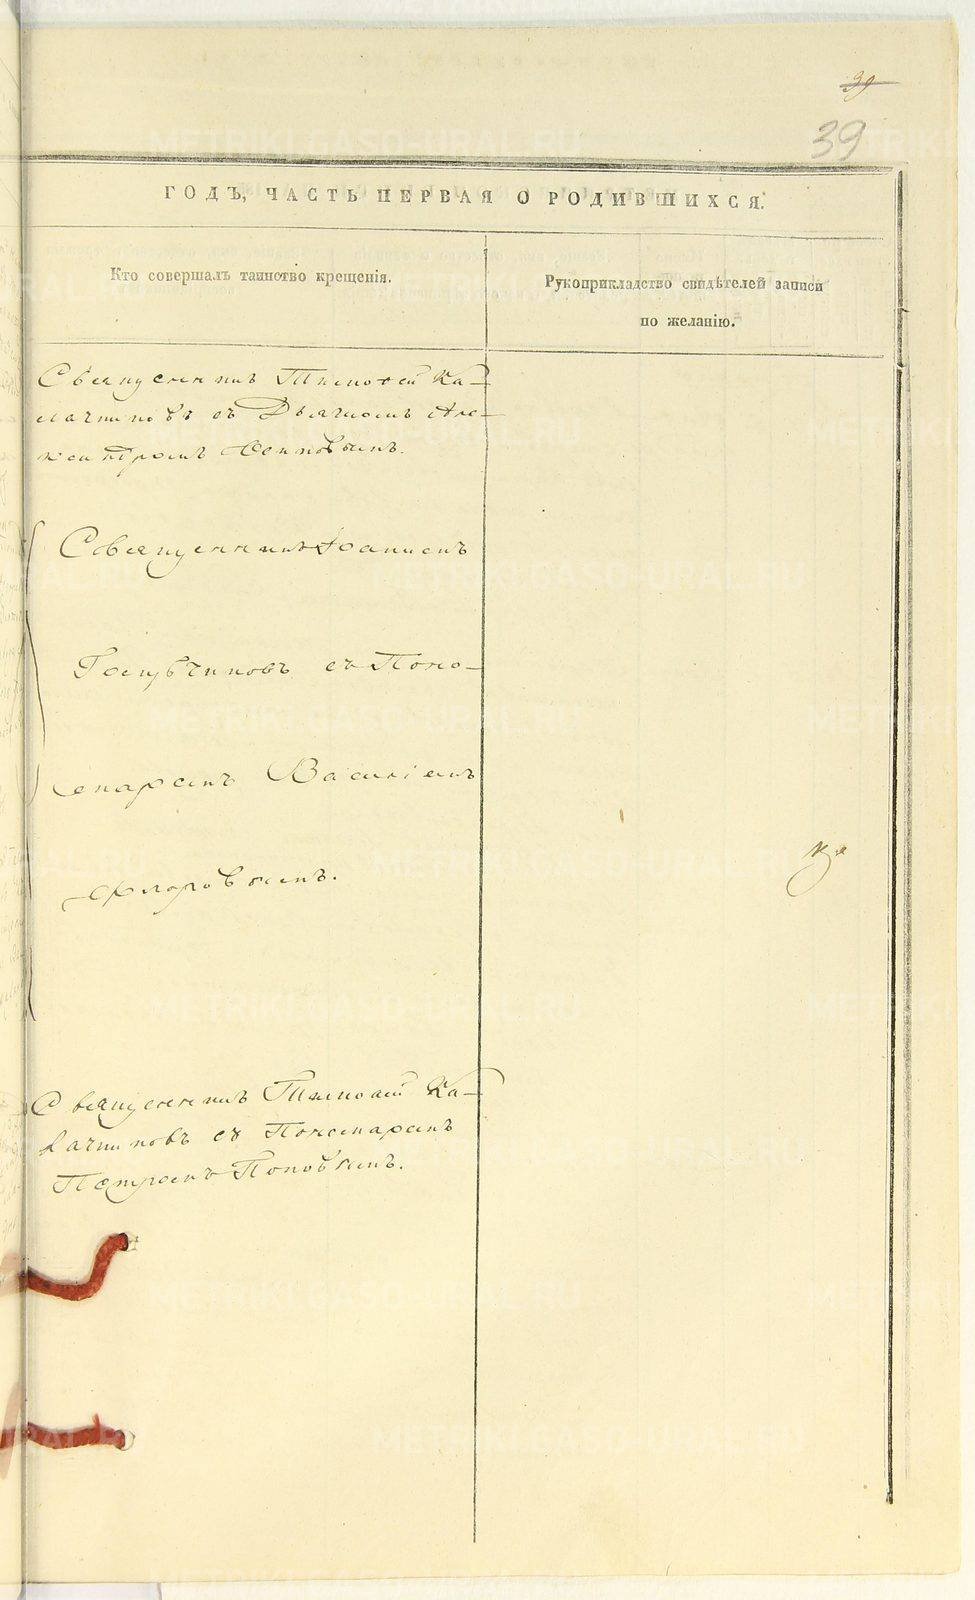 39
39
ГОДЪ, ЧАСТЬ ПЕРВАЯ О РОДИВШИХСЯ.
Кто совершалъ таинство крещенія.
Рукоприкладство свидѣтелей записи
по желанію.
Священникъ Тимофей Ка-
лачниковъ съ Дьячкомъ Але-
ксандромъ Поповымъ.
Священникъ Іоаннъ
съ Поно-
маремъ Василіемъ
Флоровымъ.
Священникъ Тимофей Ка-
лачниковъ съ Пономаремъ
Петромъ Поповымъ.
METRIKI.GASO-URAL.RU